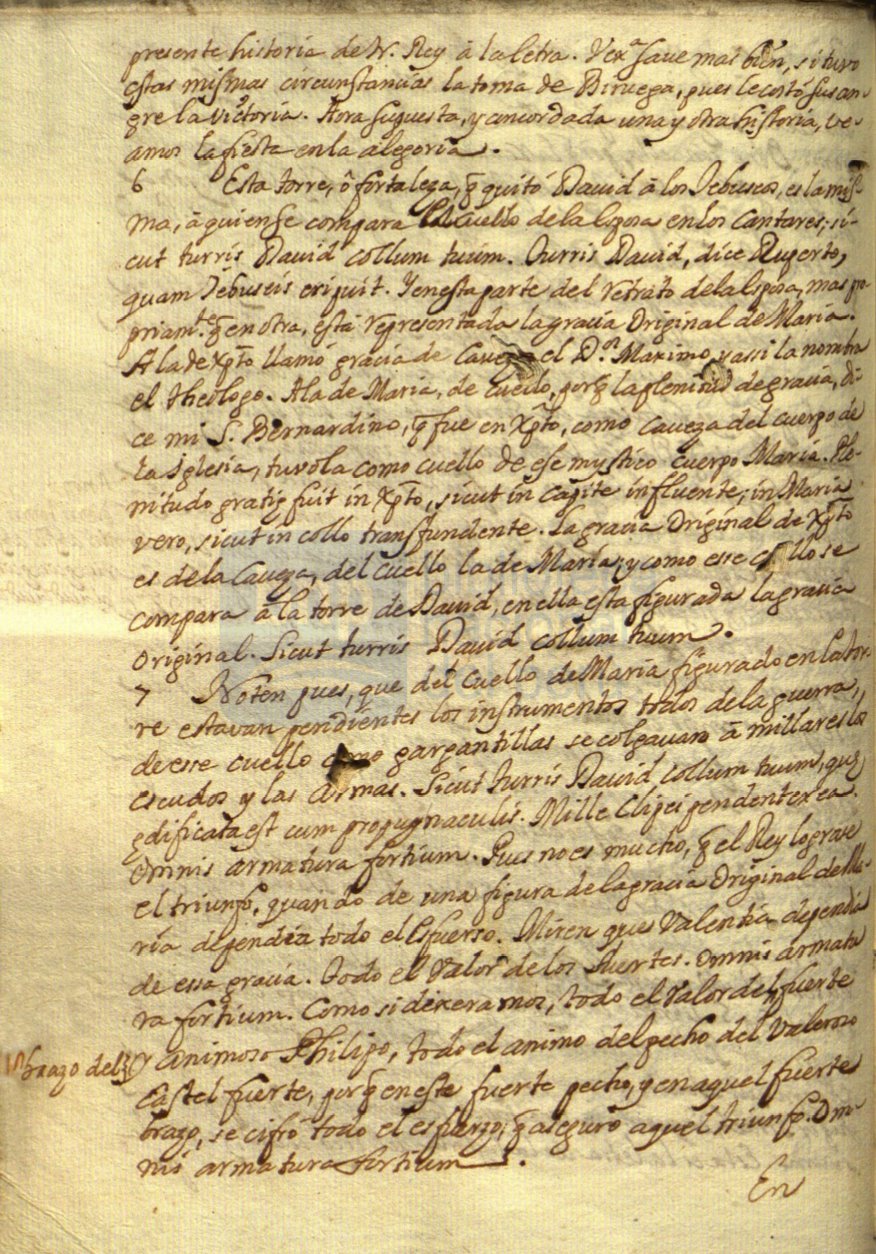 presente historia de N. Rey â la letra. Vexª save mas bien, si tuvo
estas mismas circunstancias la toma de Biruega, pues le costó su san-
gre la victoria. Aora supuesta, y concordada una y otra historia, ve-
amos la fiesta en la alegoria.
6 Esta torre, ô fortaleza, q̄ quitó David â los Jebuseos, es la mis-
ma, â quien se compara el cuello de la esposa en los Cantares, si-
cut turris David collum tuum. Turris David, dice Ruperto,
quam Jebuseis eripuit. Y en esta parte del retrato de la esposa, mas pro-
priamte. q̄ en otra, está representada la gracia Original de Maria.
A la de Xp̄to llamó gracia de Caveza el D.r Maximo, y assi la nombra
el Theologo. A la de Maria, de cuello, porq̄ la plenitud de gracia, di-
ce mi S. Bernardino, q̄ fue en Xp̄to, como Caveza del cuerpo de
la Iglesia, tuvola como cuello de ese mystico cuerpo Maria. Ple-
nitudo gratię fuit in Xp̄to, sicut in capite influente, in Maria
vero, sicut in collo transfundente. La gracia Original de Xp̄to
es de la Caveza, del cuello la de Maria, y como esse cuello se
compara â la torre de David, en ella esta figurada la gracia
Original. Sicut turris David collum tuum.
7 Noten pues, que del cuello de Maria figurado en la tor-
re estavan pendientes los instrumentos todos de la guerra,
de esse cuello como gargantillas se colgavan â millares los
escudos y las armas. Sicut turris David collum tuum, quę
ędificata est cum propugnaculis. Mille Clipei pendent ex ea.
Omnis armatura fortium. Pues no es mucho, q̄ el Rey lograse
el triunfo, quando de una figura de la gracia Original de Ma-
ria dependia todo el Esfuerso. Miren que Valentia dependia
de essa gracia. Todo el Valor de los fuertes. Omnis armatu-
ra fortium. Como si dixeramos, todo el Valor del fuerte
brazo del
y animoso Philipo, todo el animo del pecho del Valeroso
Castel fuerte, porq̄ en este fuerte pecho, y en aquel fuerte
brazo, se cifró todo el esfuerzo, q̄ aseguró aquel triunfo. Om-
nis armatura fortium.
En